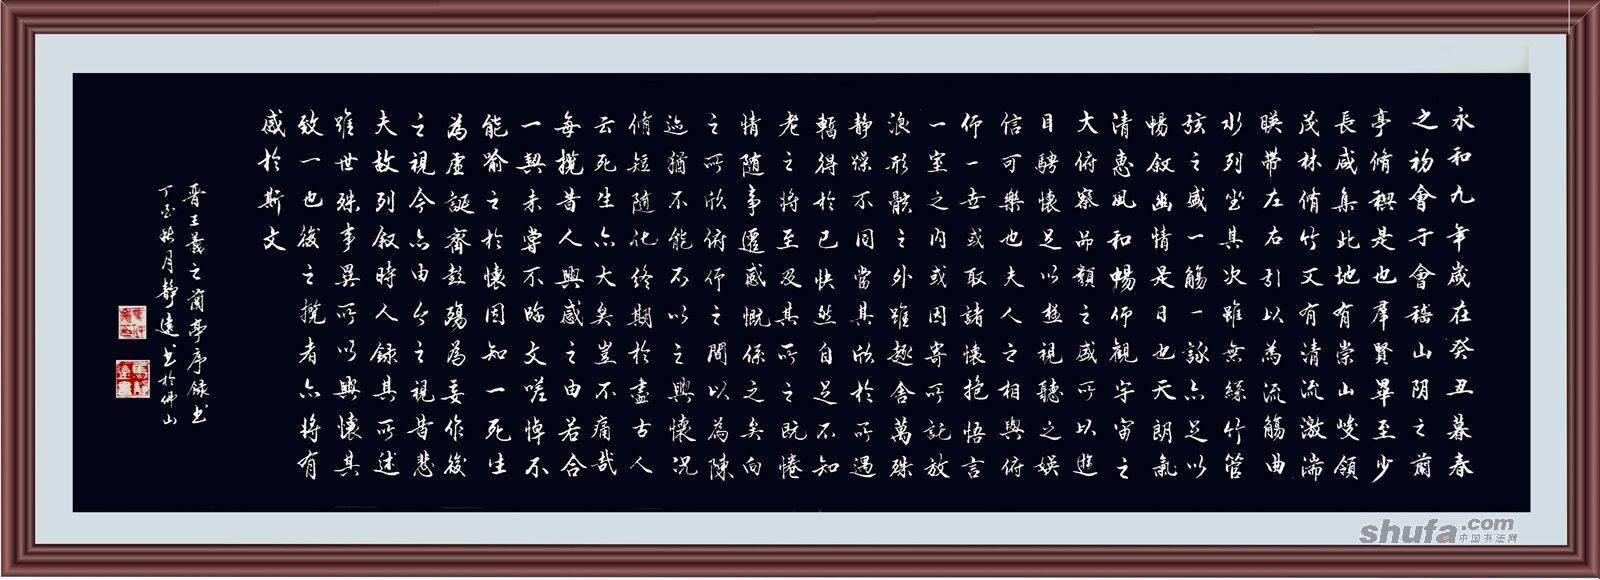 永和九年歲在癸丑暮春
之初會于會稽山陰之蘭
亭脩禊是也羣賢畢至少
長咸集此地有崇山峻領
茂林脩竹又有清流激湍
暎帶左右引以為流觴曲
水列坐其次雖無絲竹管
弦之盛一觴一詠亦足以
暢叙幽情是日也天朗氣
清惠風和暢仰觀宇宙之
大俯察品類之盛所以遊
目騁懷足以極視聽之娛
信可樂也夫人之相與俯
仰一世或取諸懷抱悟言
一室之內或因寄所託放
浪形骸之外雖趣舍萬殊
靜躁不同當其欣於所遇
暫得於己快然自足不知
老之將至及其所之既惓
情隨事遷感慨係之矣向
之所欣俯仰之間以為陳
迹猶不能不以之興懷況
脩短隨化終期於盡古人
云死生亦大矣豈不痛哉
每攬昔人興感之由若合
一契未嘗不臨文嗟悼不
能喻之於懷固知一死生
為虛誕齊彭殤為妄作後
之視今亦由今之視昔悲
夫故列叙時人錄其所述
雖世殊事異所以興懷其
致一也後之攬者亦將有
感於斯文
晉王羲之蘭亭序錄書
丁亥秋月靜遠書於佛山
shufa.com
中国书法网